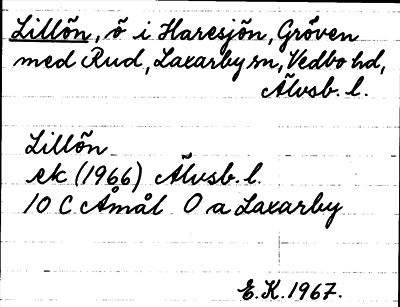 Lillõn, õ i Haresjõn, Grõven
med Rud, Laxarby sn, Vedbo hd,
Älvsb. l.
Lillõn
ek (1966) Älvsb. l.
10 C Åmål O a Laxarby
E. K. 1967.